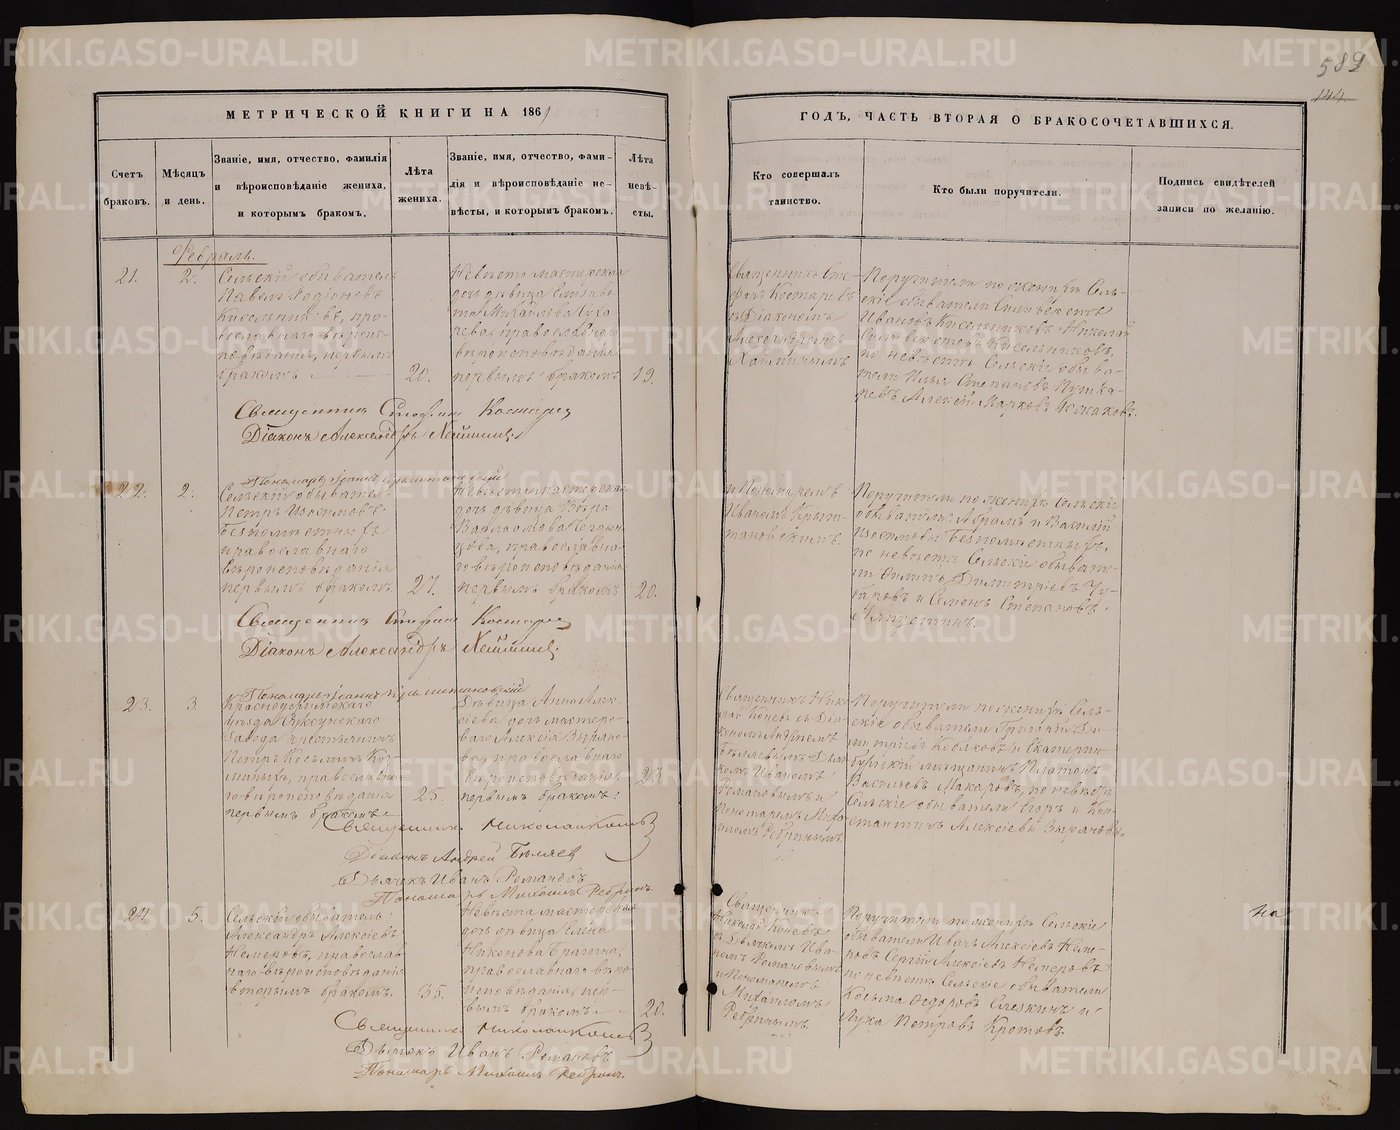 589
144
МЕТРИЧЕСКОЙ КНИГИ НА 1861
ГОДЪ, ЧАСТЬ ВТОРАЯ О БРАКОСОЧЕТАВШИХСЯ.
Счетъ
браковъ.
Мѣсяцъ
и день.
Званіе, имя, отчество, фамилія
и вѣроисповѣданіе жениха,
и которымъ бракомъ.
Лѣта
жениха.
Званіе, имя, отчество, фами-
лія и вѣроисповѣданіе не-
вѣсты, и которымъ бракомъ.
Лѣта
невѣ-
сты.
Кто совершалъ
таинство.
Кто были поручители.
Подпись свидѣтелей
записи по желанію.
Февраль.
21.
2.
Сельскій обыватель
Павелъ Родіоновъ
Кисельниковъ, пра-
вославнаго вѣроис-
повѣданія, первымъ
бракомъ
20.
Невѣста мастерская
дочь дѣвица Елизаве-
та Михайлова
православнаго
вѣроисповѣданія
первымъ бракомъ
19.
Священникъ Сте-
фанъ Костаревъ
съ Діакономъ
Александромъ
Поручители по женихѣ Сель-
скіе обыватели Сильвестръ
Ивановъ Кисельниковъ, Николай
Сильвестровъ Кисельниковъ,
по невѣстѣ Сельскіе обыва-
тели Илья Степановъ Пушка-
ревъ, Алексѣй Марковъ
Священникъ Стефанъ Костаревъ
Діаконъ Александръ
Пономарь Іоаннъ
22.
2.
Сельскій обыватель
Петръ Изосимовъ
Безпометныхъ
православнаго
вѣроисповѣданія
первымъ бракомъ
27.
Невѣста мастерская
дочь дѣвица Вѣра
Варлаамова
православна-
го вѣроисповѣданія
первымъ бракомъ
20.
и Пономаремъ
Иваномъ
Поручители по женихѣ Сельскіе
обыватели Абрамъ и Василій
Изосимовы Безпометныхъ,
по невѣстѣ Сельскіе обывате-
ли Филипъ Димитріевъ
и Семенъ Степановъ
Священникъ Стефанъ Костаревъ
Діаконъ Александръ
Пономарь Іоаннъ
23.
3.
Красноуфимскаго
уѣзда
завода крестьянинъ
Петръ Косьминъ
православна-
го вѣроисповѣданія
первымъ бракомъ
25.
Дѣвица Анна Алек-
сіева дочь мастеро-
ваго Алексія Зыряно-
ва, православнаго
вѣроисповѣданія
первымъ бракомъ.
23
Священникъ Нико-
лай Коневъ съ Діа-
кономъ Андреемъ
Бѣляевымъ, Дьяч-
комъ Иваномъ
Романовымъ и
Пономаремъ Миха-
иломъ Ребринымъ.
Поручители по женихѣ Сель-
скіе обыватели Григорій Ди-
митріевъ и Екатерин-
бургскій мѣщанинъ Платонъ
Васильевъ Макаровъ, по невѣстѣ
Сельскіе обыватели Егоръ и Кон-
стантинъ Алексіевы Зыряновы.
Священникъ Николай Коневъ
Діаконъ Андрей Бѣляев
Дьячекъ Иванъ Романовъ
Пономарь Михаилъ Ребринъ.
24.
5.
Сельскій обыватель
Александръ Алексіевъ
Немеровъ, православ-
наго вѣроисповѣданія
вторымъ бракомъ.
35.
Невѣста мастерская
дочь дѣвица Елена
Никонова
православнаго вѣро-
исповѣданія, пер-
вымъ бракомъ
20.
Священникъ
Николай Коневъ
съ Дьячкомъ Ива-
номъ Романовымъ
и Пономаремъ
Михаиломъ
Ребринымъ.
Поручители по женихѣ Сельскіе
обыватели Иванъ Алексіевъ Неме-
ровъ Сергій Алексіевъ Немеровъ
по невѣстѣ Сельскіе обыватели
Косьма Ѳедоровъ и
Лука Петровъ Кротовъ.
На
Священникъ Николай Коневъ
Дьячекъ Иванъ Романовъ
Пономарь Михаилъ Ребринъ.
METRIKI.GASO-URAL.RU